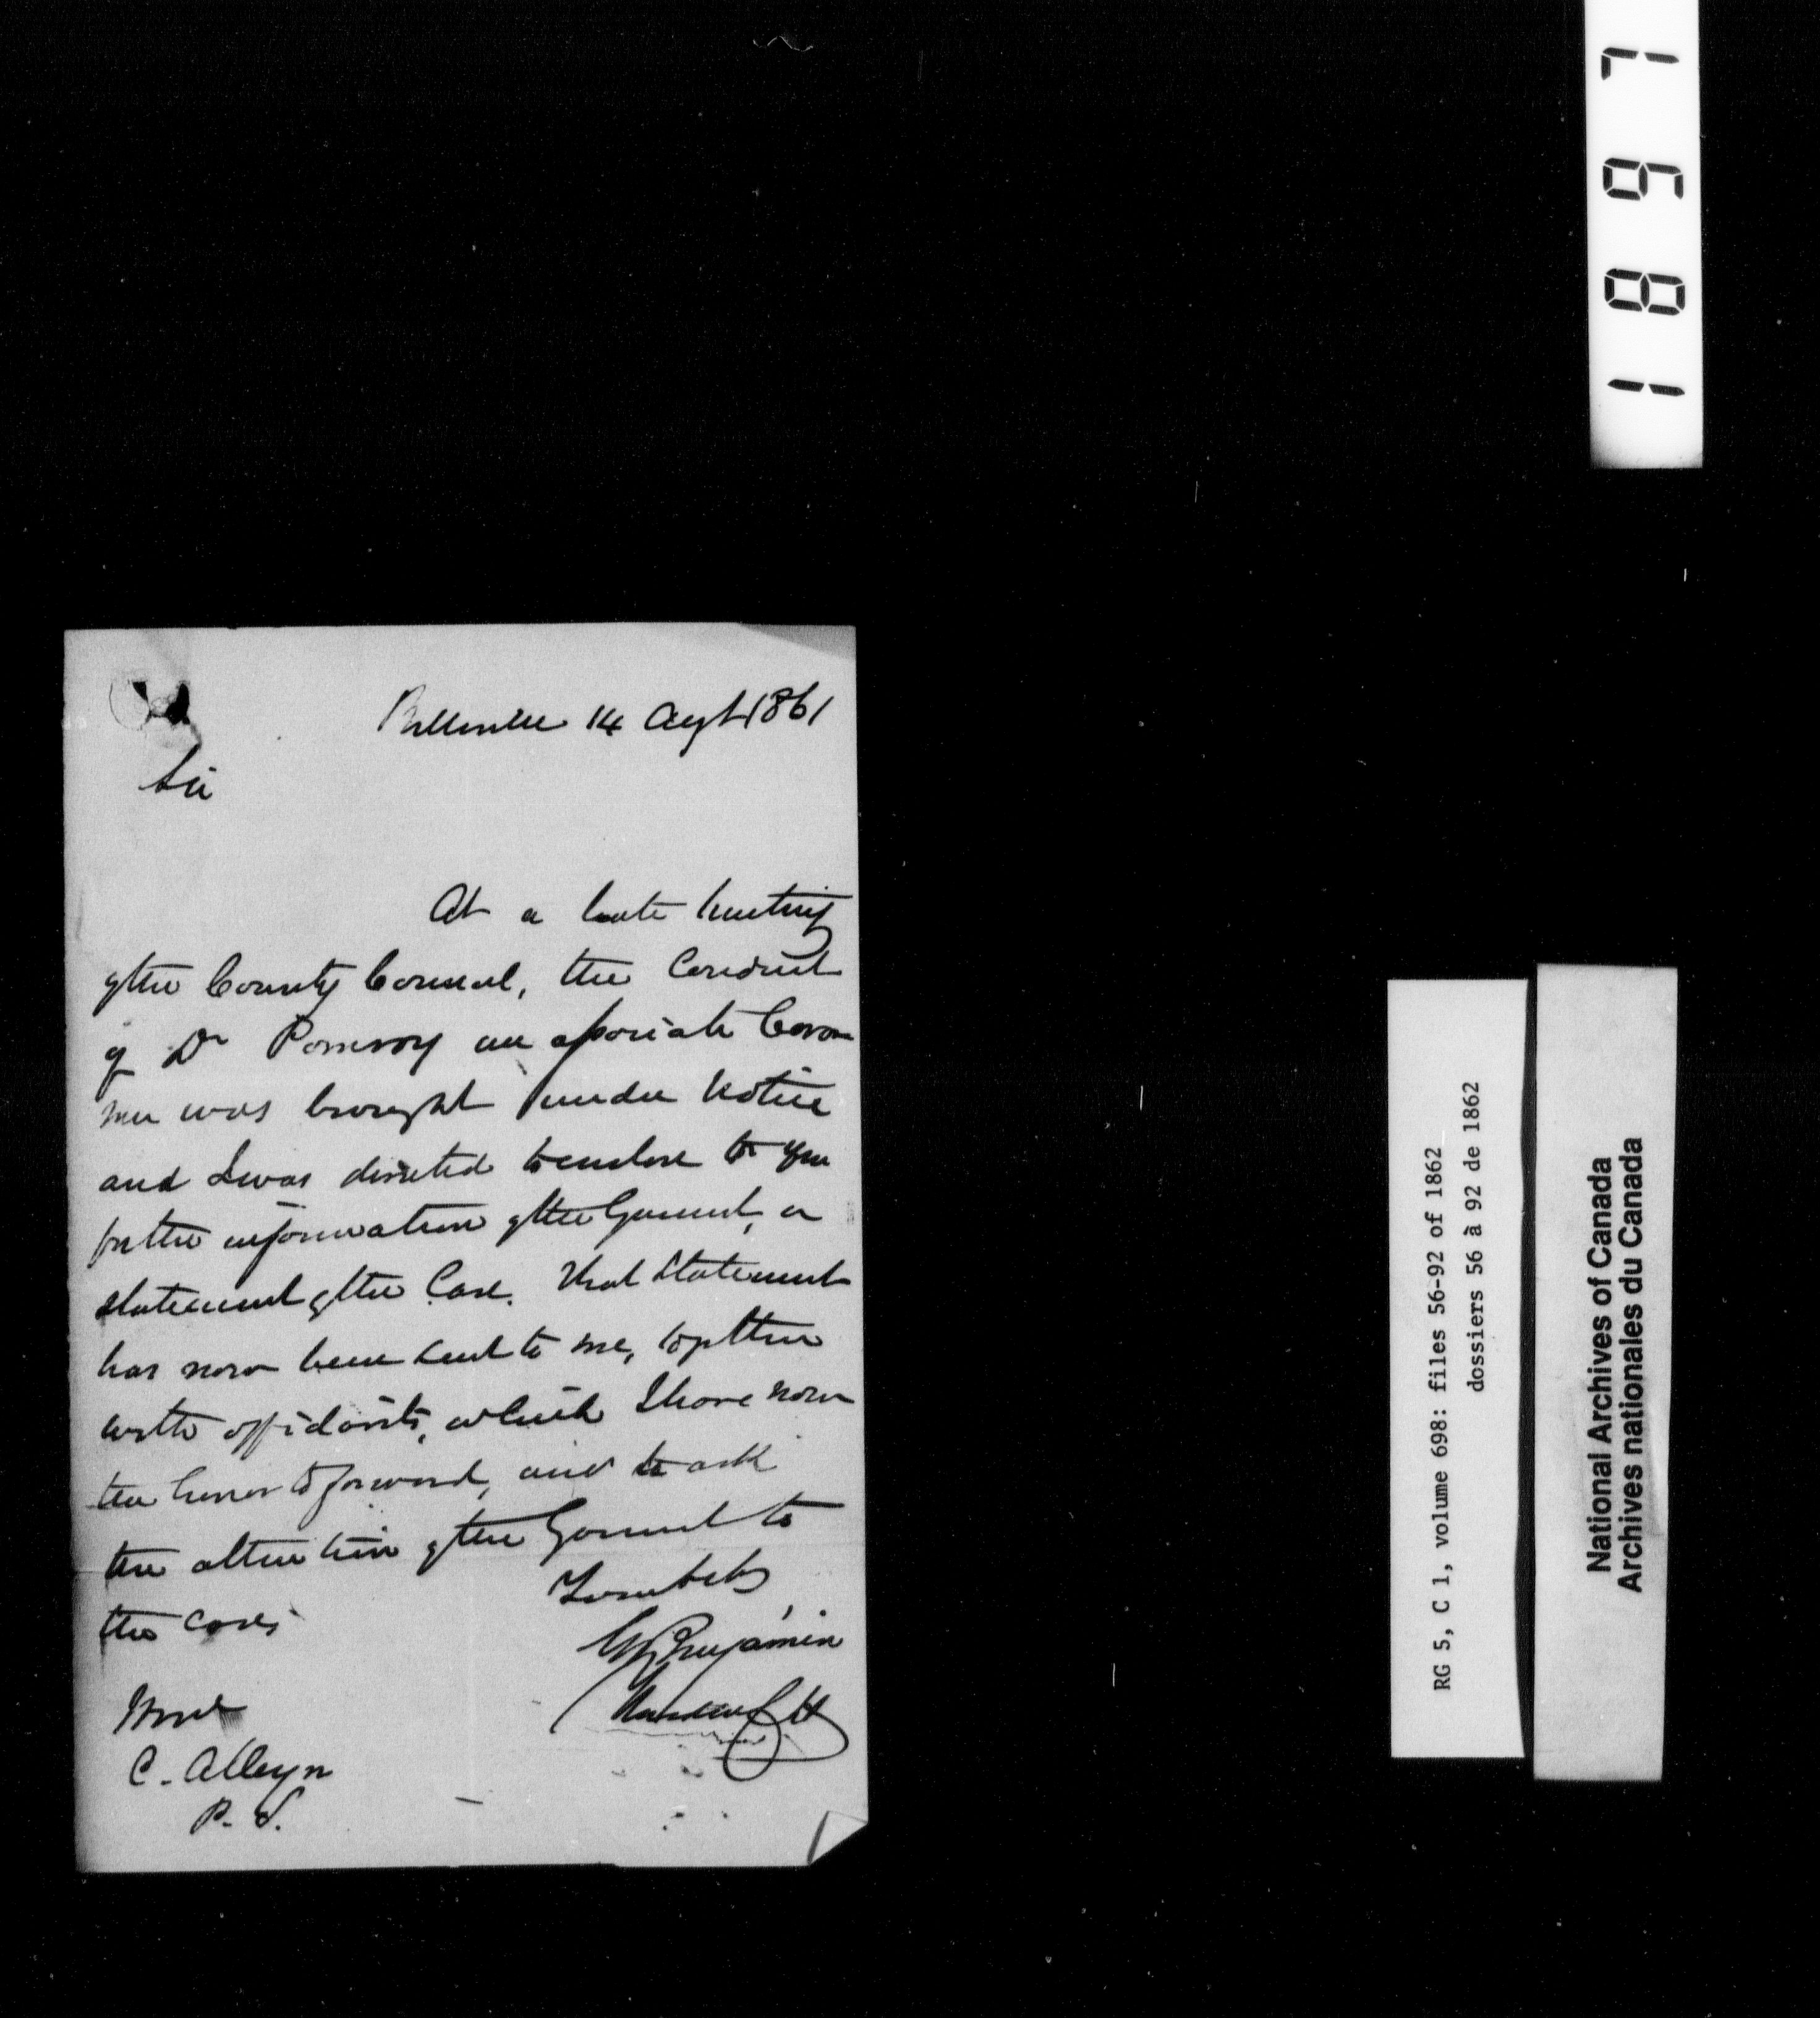 Belleville 14 Augt 1861
Sir
At a late meeting
of the County Council, the Conduct
of Dr Pomeroy an associate Coro
ner was brought under notice
and I was directed to enclose to you
for the information of the Government, a
statement of the Case. That Statement
has now been sent to me, together
with affidavits, which I have now
the honor to forward, and to ask
the attention of the Government to
the case
Your obt
G Benjamin
Warden C H
Honl
C. Alleyn
P. S.
1897
RG 5, C 1, volume 698: files 56-92 of 1862
dossiers 56 à 92 de 1862
National Archives of Canada
Archives nationales du Canada